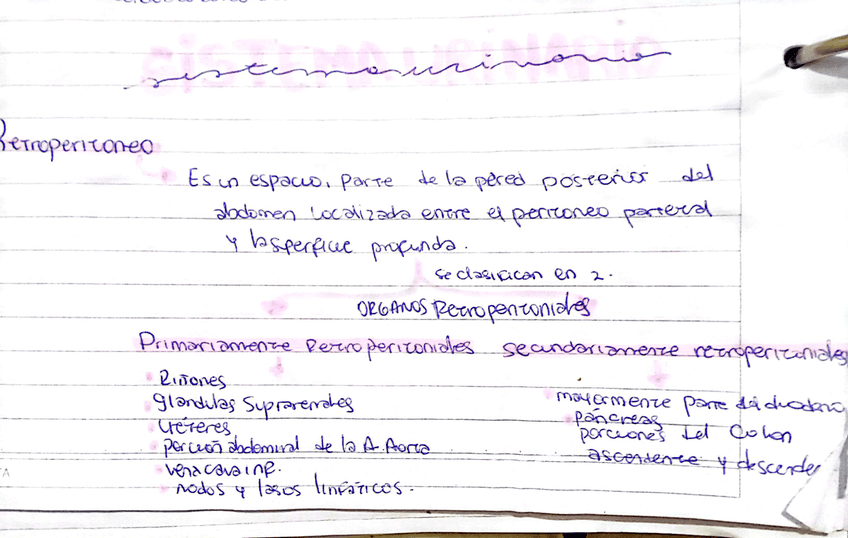 sistema urinario
Retroperitoneo
Es un espacio, parte de la pared posterior del
abdomen localizada entre el peritoneo parietal
y la sperficie profunda.
se clasifican en 2.
ORGANOS Retroperitoniales
Primariamente Retroperitoniales secundariamente retroperitoniales
Riñones
glandulas suprarrenales
Uréteres
porcion abdominal de la A. Aorta
vena cava inf.
nodos y vasos linfáticos.
mayormente parte del duodeno
páncreas
porciones del Colon
ascendente y descende